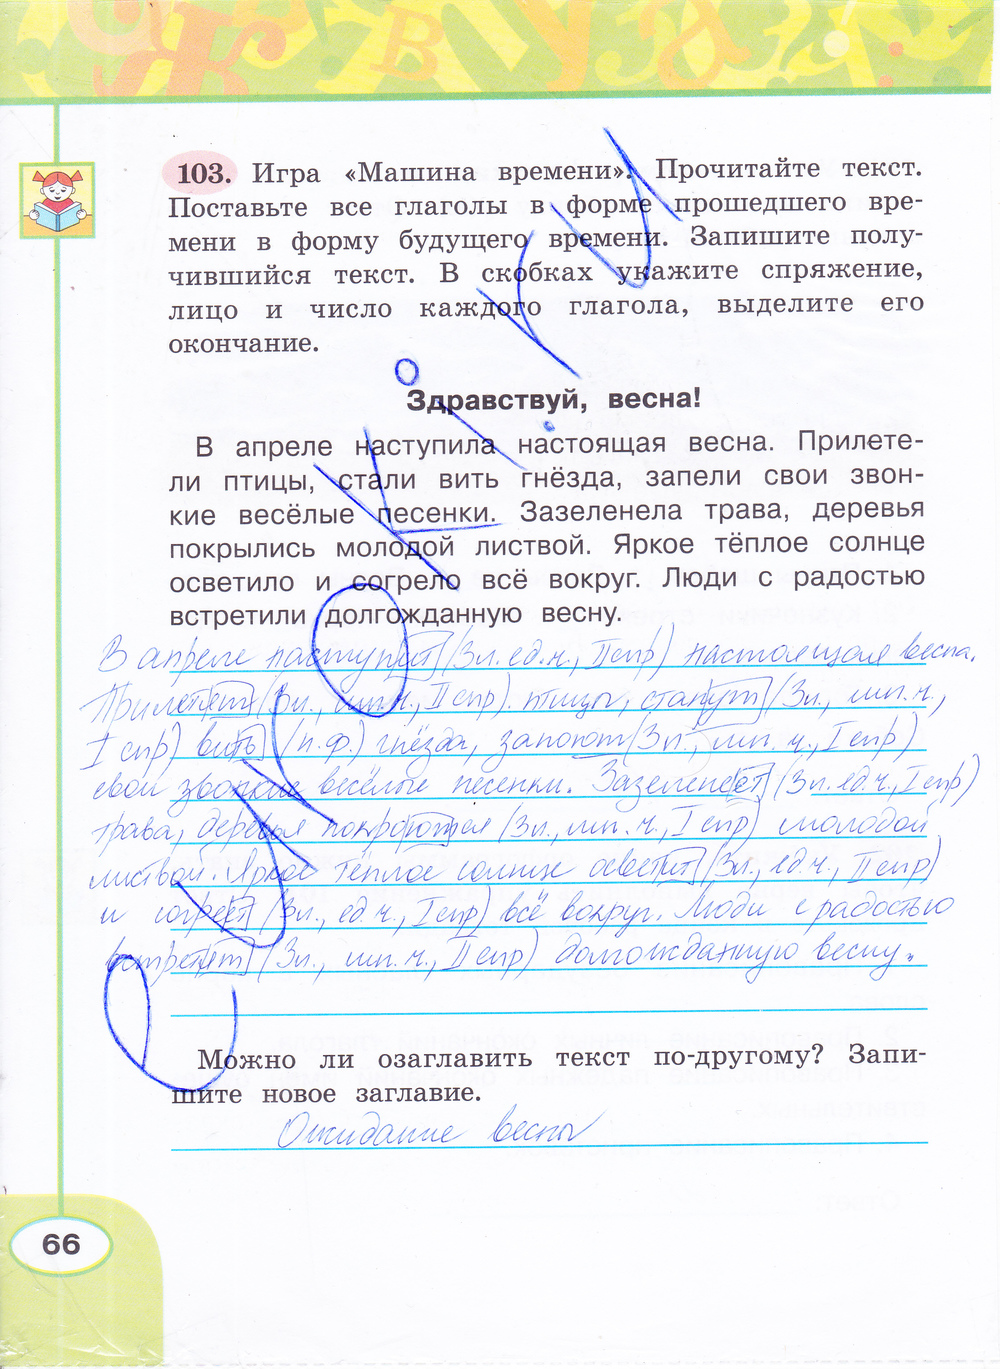 103. Игра «Машина времени». Прочитайте текст.
Поставьте все глаголы в форме прошедшего вре-
мени в форму будущего времени. Запишите полу-
чившийся текст. В скобках укажите спряжение,
лицо и число каждого глагола, выделите его
окончание.
Здравствуй, весна!
В апреле наступила настоящая весна. Прилете-
ли птицы, стали вить гнёзда, запели свои звон-
кие весёлые песенки. Зазеленела трава, деревья
покрылись молодой листвой. Яркое тёплое солнце
осветило и согрело всё вокруг. Люди с радостью
встретили долгожданную весну.
В апреле наступит (3л. ед.ч., II спр) настоящая весна.
Прилетят (3л., мн.ч., II спр). птицы, станут (3л., мн.ч.,
I спр) вить (н.ф.) гнёзда, запоют (3л., мн. ч., I спр)
свои звонкие весёлые песенки. Зазеленеет (3л. ед.ч., I спр)
трава, деревья покроются (3л., мн. ч., I спр) молодой
листвой. Яркое тёплое солнце осветит (3л., ед.ч., II спр)
и согреет (3л., ед.ч., I спр) всё вокруг. Люди с радостью
встретят (3л., мн.ч., II спр) долгожданную весну.
Можно ли озаглавить текст по-другому? Запи-
шите новое заглавие.
Ожидание весны
66